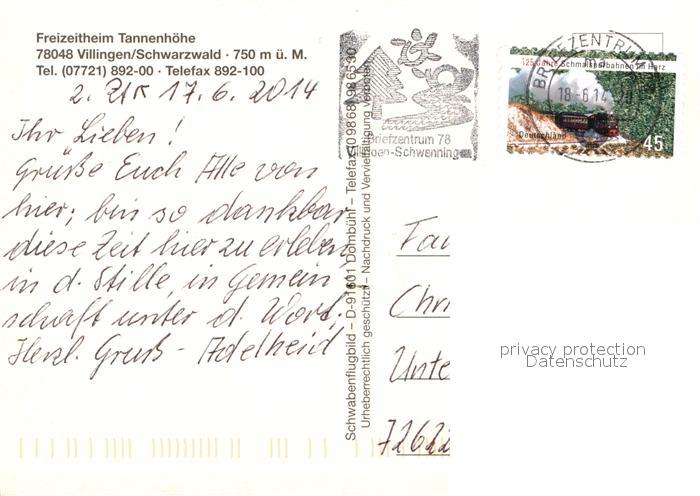 Freizeitheim Tannenhöhe
78048 Villingen/Schwarzwald · 750 m ü. M.
Tel. (07721) 892-00 · Telefax 892-100
17.6.2014
Ihr Lieben!
Grüße Euch Alle von
hier; bin so dankbar
diese Zeit hier zu erleben
in d. Stille, in Gemein
schaft unter d. Wort.
Herzl. Gruß - Adelheid
Briefzentrum 78
Villingen-Schwenningen
Schwabenflugbild – D-91601 Dombühl – Telefax
Urheberrechtlich geschützt – Nachdruck und Vervielfältigung verboten
BRIEFZENTRUM
18-6.14
125 Jahre Schmalspurbahnen im Harz
Deutschland
45
Chri
Unte
72622
privacy protection
Datenschutz